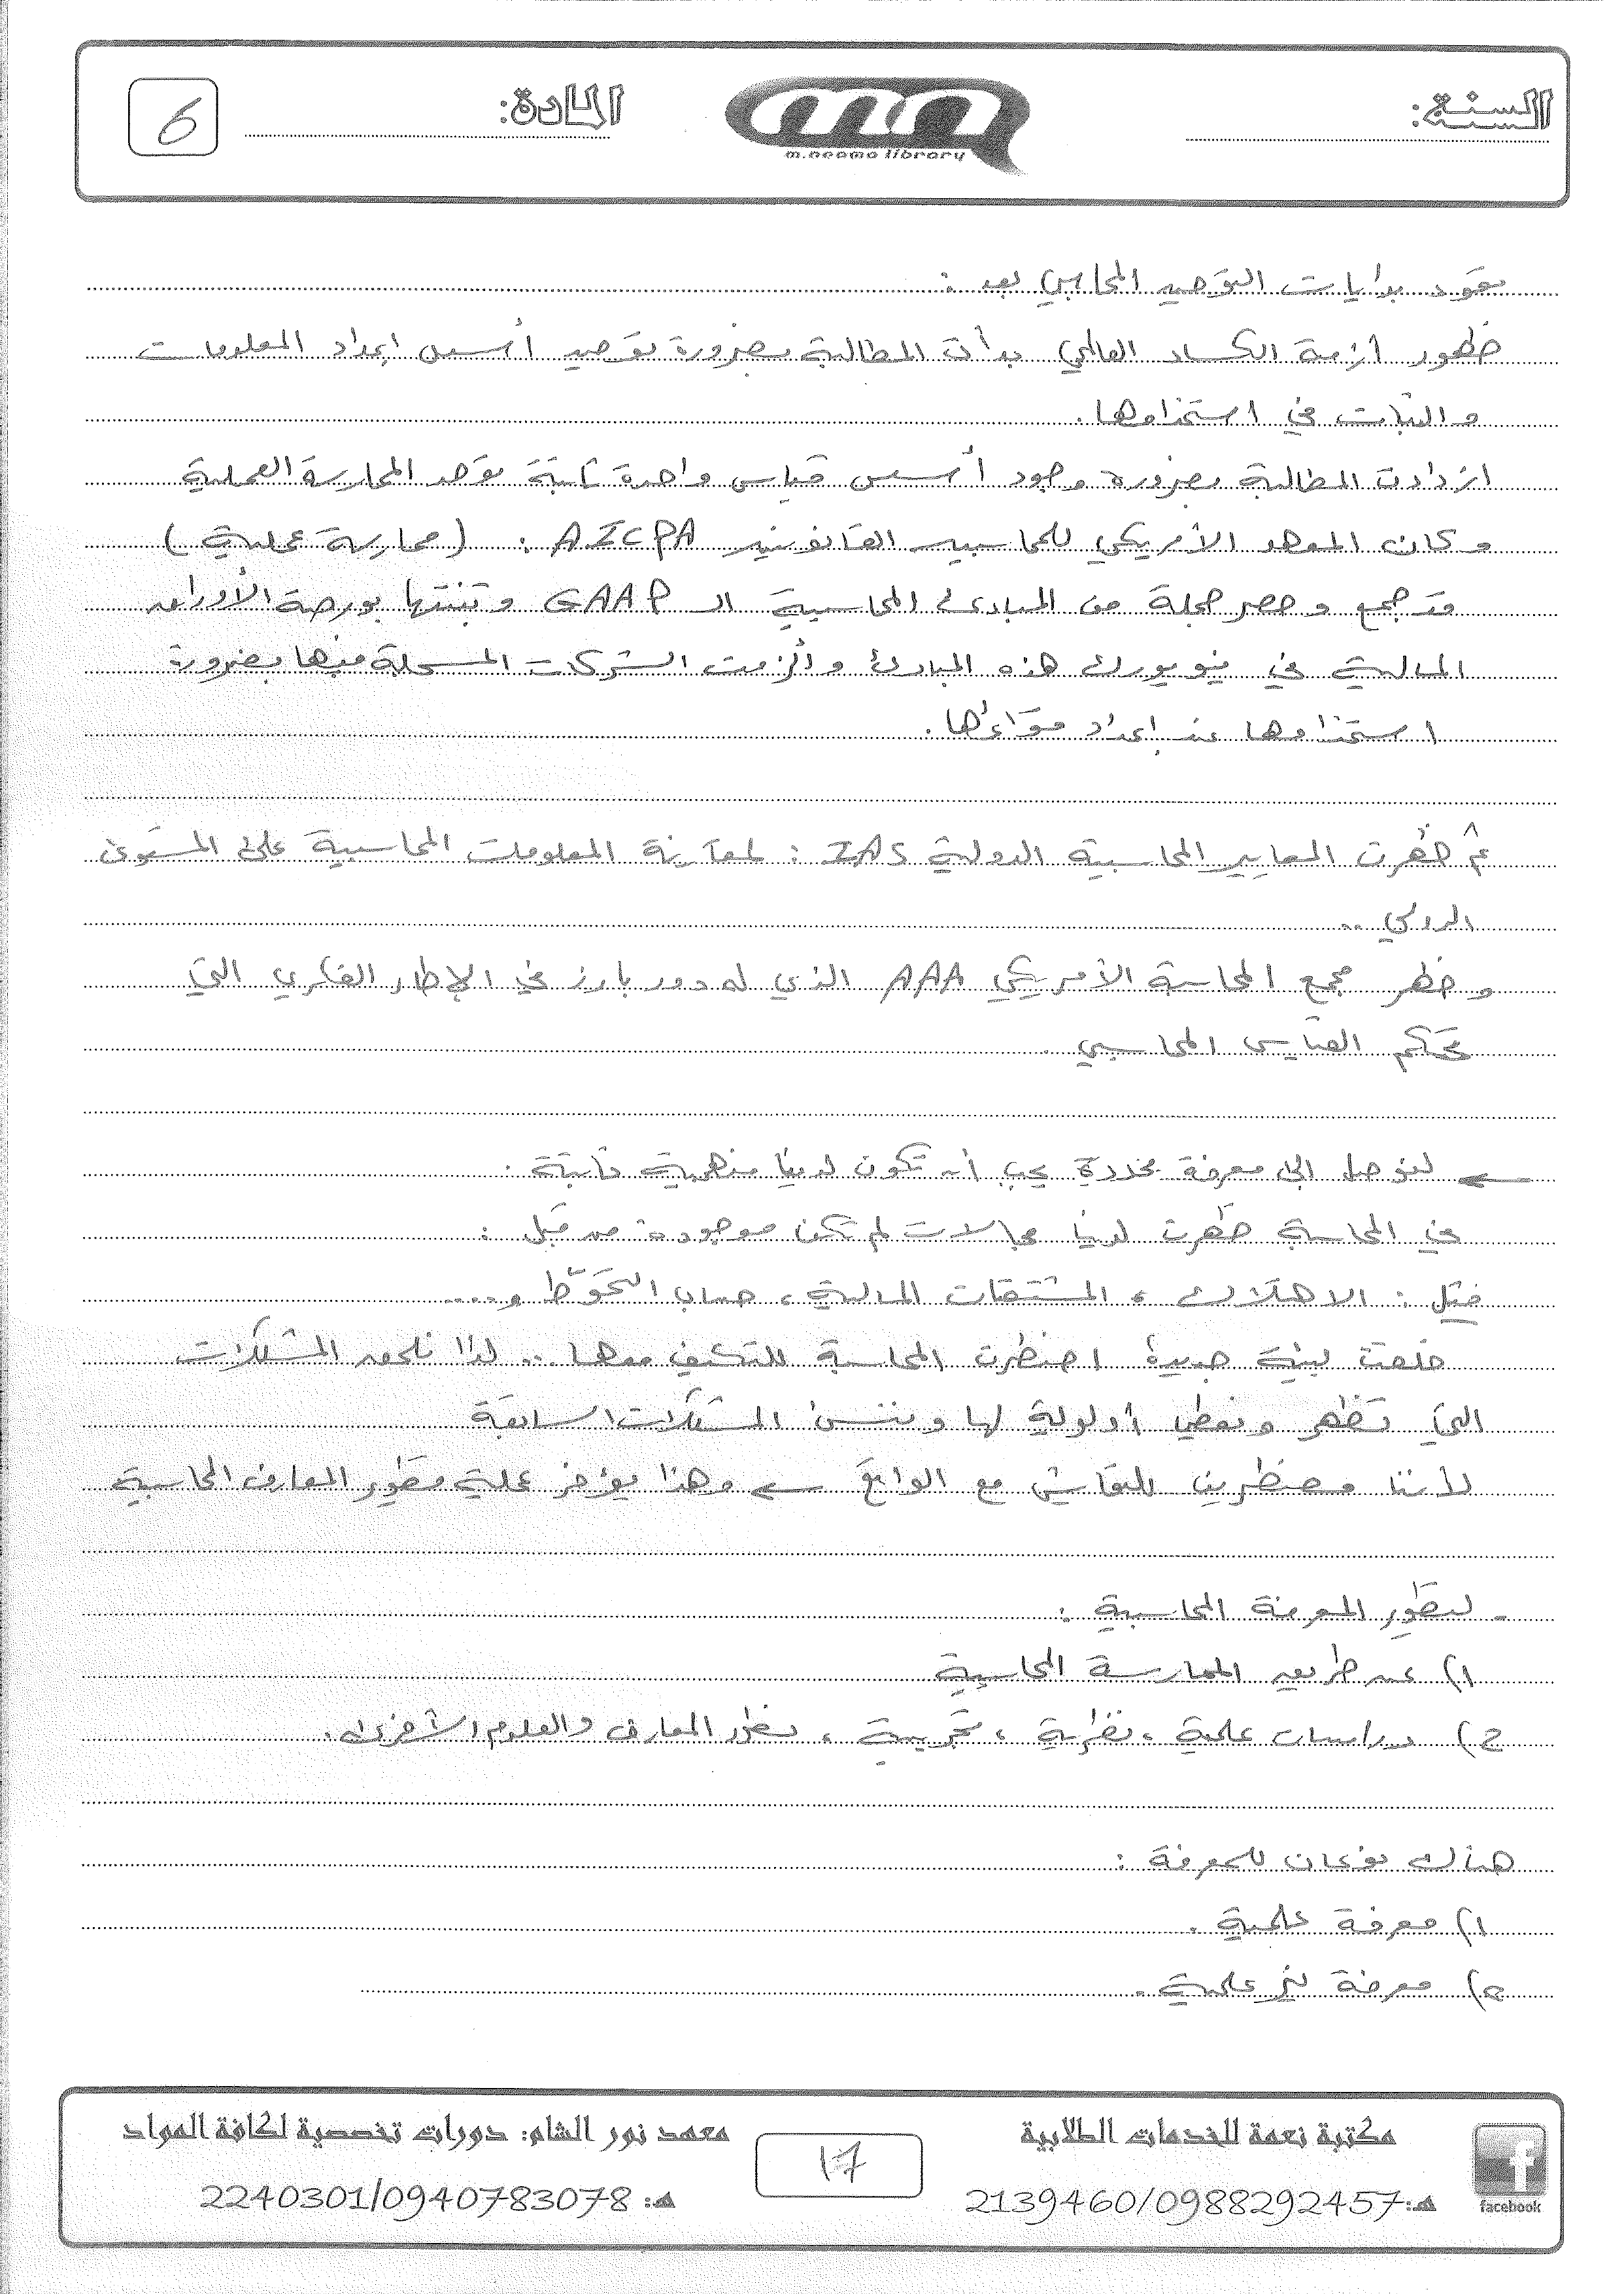 السنة:
المادة:
6
m.neama library
تعود بدايات التوحيد المحاسبي بعد :
ظهور أزمة الكساد العالمي بدأت المطالبة بضرورة توحيد أسس إعداد المعلومات
والثبات في استخدامها .
ازدادت المطالبة بضرورة وجود أسس قياس واحدة ثابتة توحد الممارسة العملية
وكان المعهد الأمريكي للمحاسبين القانونيين AICPA : (ممارسة عملية)
قد جمع وحصر جملة من المبادئ المحاسبية الـ GAAP وتبنتها بورصة الأوراق
المالية في نيويورك هذه المبادئ وألزمت الشركات المسجلة فيها بضرورة
استخدامها عند إعداد قوائمها .
ثم ظهرت المعايير المحاسبية الدولية IAS : لمقارنة المعلومات المحاسبية على المستوى
الدولي ..
وظهر مجمع المحاسبة الأمريكي AAA الذي له دور بارز في الإطار الفكري التي
تحكم القياس المحاسبي .
← لنتوصل إلى معرفة محددة يجب أن تكون لدينا منهجية ثابتة .
في المحاسبة ظهرت لدينا مجالات لم تكن موجودة من قبل :
مثل : الاهتلاك ، المشتقات المالية ، حساب التحوّط و....
خلقت بيئة جديدة اضطرت المحاسبة للتكيف معها .. لذا نلحق المشكلات
التي تظهر ونعطي أولوية لها وننسى المشكلات السابقة
لأننا مضطرين للتعايش مع الواقع ← وهذا يؤخر عملية تطوير المعارف المحاسبية
- لتطوير المعرفة المحاسبية :
1) عن طريق الممارسة المحاسبية
2) دراسات علمية ، نظرية ، تجريبية ، تطور المعارف والعلوم الأخرى .
هناك نوعان للمعرفة :
1) معرفة علمية .
2) معرفة غير علمية .
مكتبة نعمة للخدمات الطلابية
هـ: 2139460/0988292457
facebook
17
معهد نور الشام: دورات تخصصية لكافة المواد
هـ: 2240301/0940783078